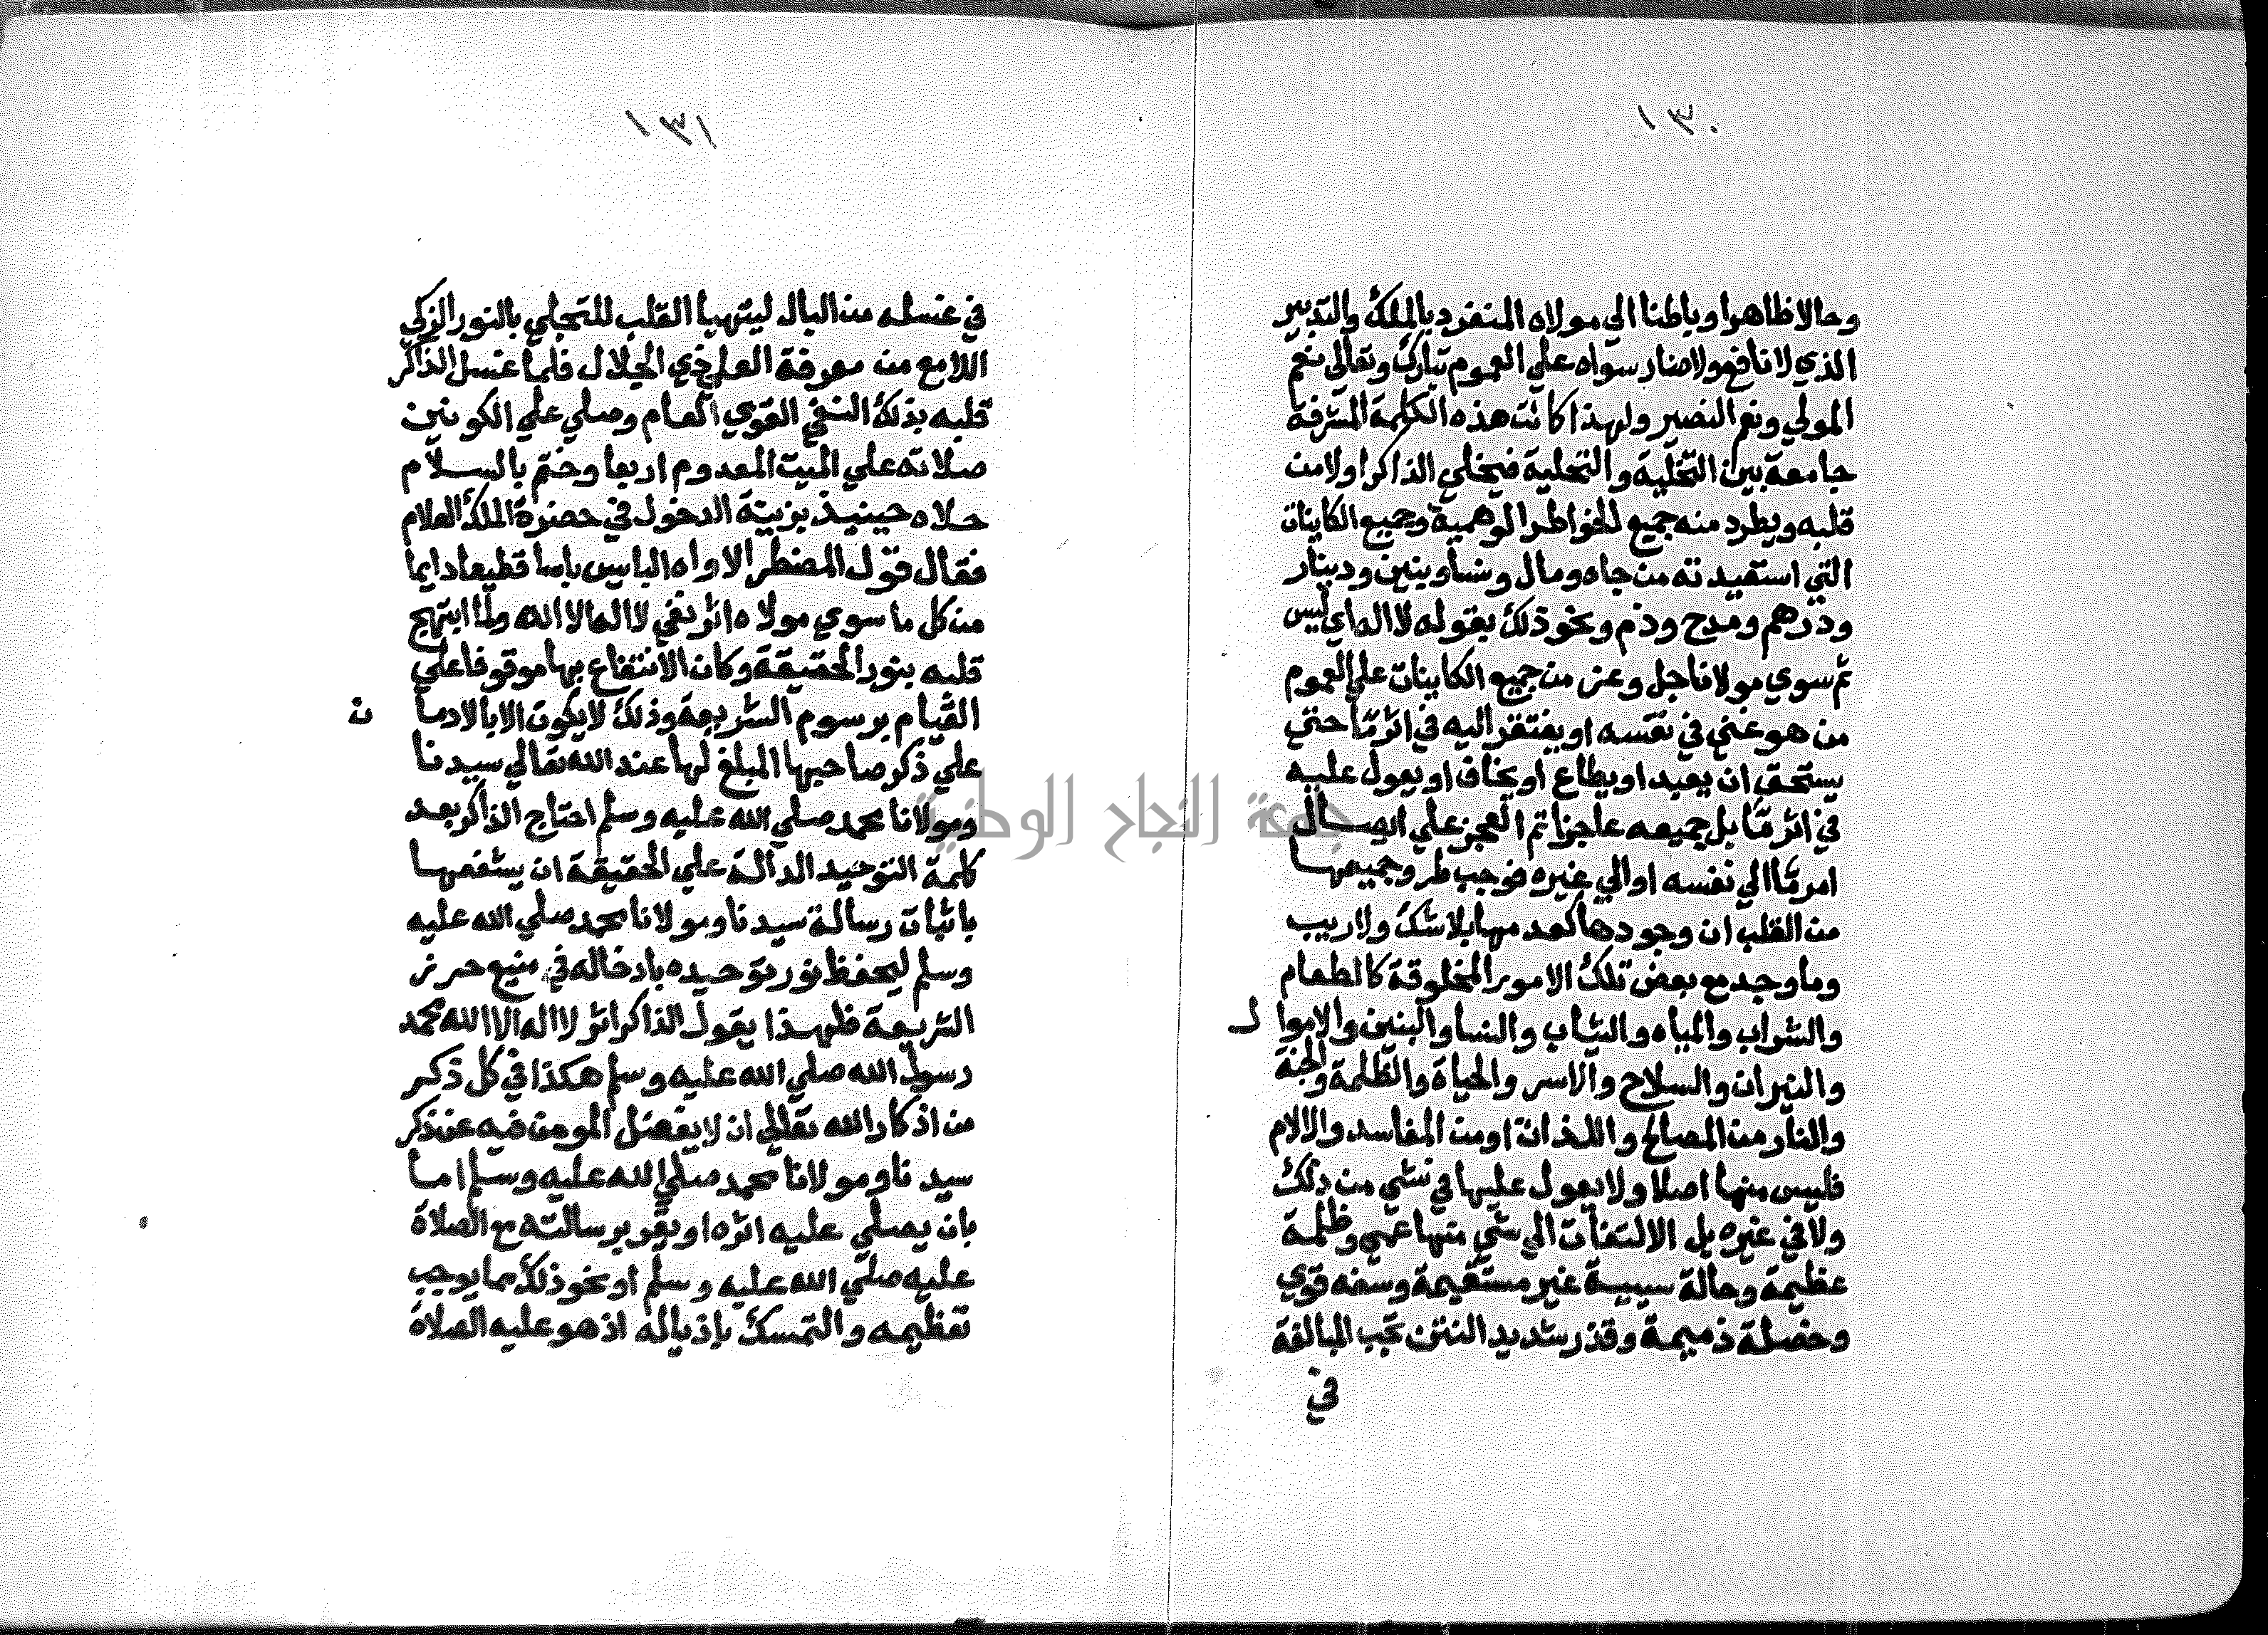 ١٣٠
وحالا ظاهرا وباطنا الي مولاه المنفرد بالملك والتدبير
الذي لا نافع ولا ضار سواه علي العموم تبارك وتعالي نعم
المولي ونعم النصير ولهذا كانت هذه الكلمة المشرفة
جامعة بين التخلية والتحلية فيخلي الذاكر اولا من
قلبه ويطرد منه جميع الخواطر الوهمية وجميع الكاينات
التي استعبدته من جاه ومال ونسا وبنين ودينار
ودرهم ومدح وذم ونحو ذلك بقوله لا اله اي ليس
ثم سوي مولانا جل وعز من جميع الكاينات علي العموم
من هو غني في نفسه او يفتقر اليه في اثر ما حتي
يستحق ان يعبد او يطاع او يخاف او يعول عليه
في اثر ما بل جميعه عاجزا تم العجز علي ايصال
امر ما الي نفسه او الي غيره فوجب طر وجميعها
من القلب ان وجودها كعدمها بلا شك ولا ريب
وما وجد مع بعض تلك الامور المخلوقة كالطعام
والشراب والمياه والثياب والنسا والبنين والاموا ل
والنيران والسلاح والاسر والحياة والظلمة والجنة
والنار من المصالح واللذات او من المفاسد والالام
فليس منها اصلا ولا يعول عليها في شي من ذلك
ولا في غيره بل الالتفات الي شي منها عمي وظلمة
عظيمة وحالة سيية غير مستقيمة وسفه قوي
وخصلة ذميمة وقذر شديد النتن تجب المبالغة
في
١٣١
في غسله من البال ليتهيا القلب للتجلي بالنور الزكي
اللامع من معرفة العلي ذي الجلال فلما غسل الذاكر
قلبه بذلك النفي القوي العام وصلي علي الكونين
صلاته علي الميت المعدوم اربعا وختم بالسلام
حلاه حينيذ بزينة الدخول في حضرة الملك العلام
فقال قول المضطر الاواه اليايس ياسا قطيعا دايما
من كل ما سوي مولاه اثر نفي لا اله الا الله ولما ابتهج
قلبه بنور الحقيقة وكان الانتفاع بها موقوفا علي
القيام برسوم الشريعة وذلك لا يكون الا بالادما ن
علي ذكر صاحبها المبلغ لها عند الله تعالي سيدنا
ومولانا محمد صلي الله عليه وسلم احتاج الذاكر بعد
كلمة التوحيد الدالة علي الحقيقة ان يشفعها
باثبات رسالة سيدنا ومولانا محمد صلي الله عليه
وسلم ليحفظ نور توحيده بادخاله في منيع حرز
الشريعة فلهذا يقول الذاكر اثر لا اله الا الله محمد
رسول الله صلي الله عليه وسلم هكذا في كل ذكر
من اذكار الله تعالي ان لا يغفل المومن فيه عن ذكر
سيدنا ومولانا محمد صلي الله عليه وسلم اما
بان يصلي عليه اثره او يقر برسالته مع الصلاة
عليه صلي الله عليه وسلم او نحو ذلك مما يوجب
تعظيمه والتمسك باذياله اذ هو عليه الصلاة
جمعة النجاح الوطنية